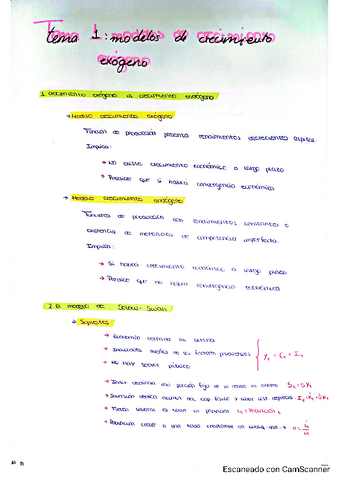 Tema 1: modelos de crecimiento
exógeno
1. crecimiento exógeno vs crecimiento endógeno
→ Modelo crecimiento exógeno
Función de producción presenta rendimientos decrecientes capital.
Implica:
→ No existe crecimiento económico a largo plazo
→ Predice que si habrá convergencia económica
→ Modelo crecimiento endógeno
Funciones de producción con rendimientos constantes o
existencia de mercados de competencia imperfecta.
Implica:
→ Si habrá crecimiento económico a largo plazo
→ Predice que no habrá convergencia económica
2. El modelo de Solow-Swan
→ Supuestos
→ Economía cerrada
→ de los factores productivos
→ No hay sector público
Yt = Ct + It
→ una porción fija de su renta en ahorro St = sYt
→ Inversión
→ la población
→ Población crece a una tasa constante n =
Escaneado con CamScanner